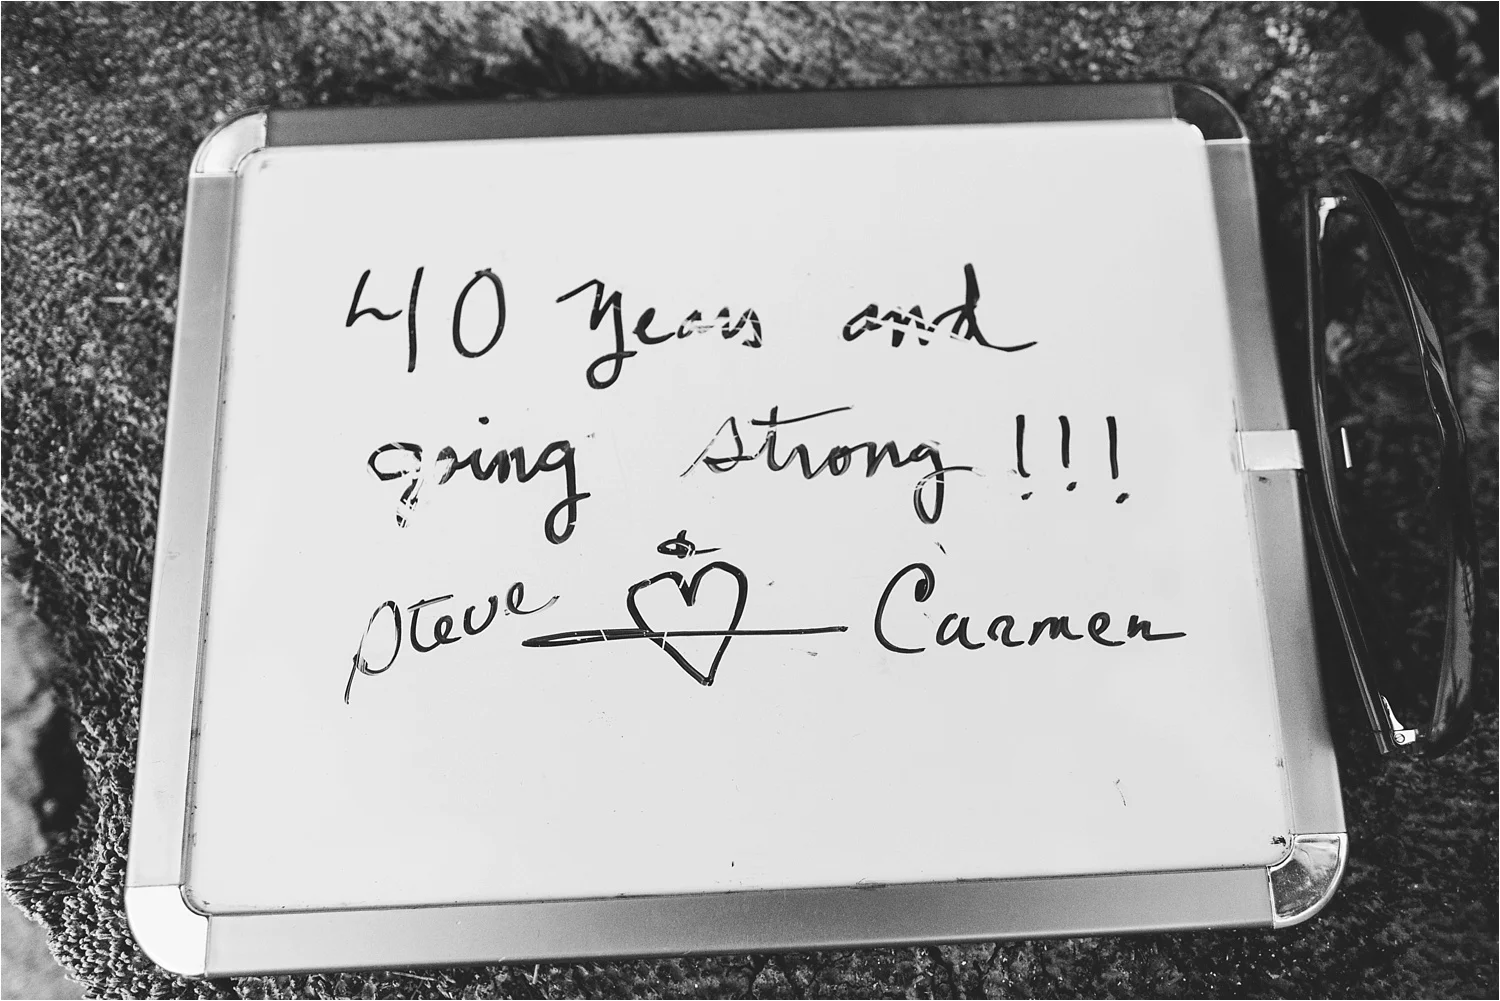 40 Years and
going strong!!!
Steve & Carmen